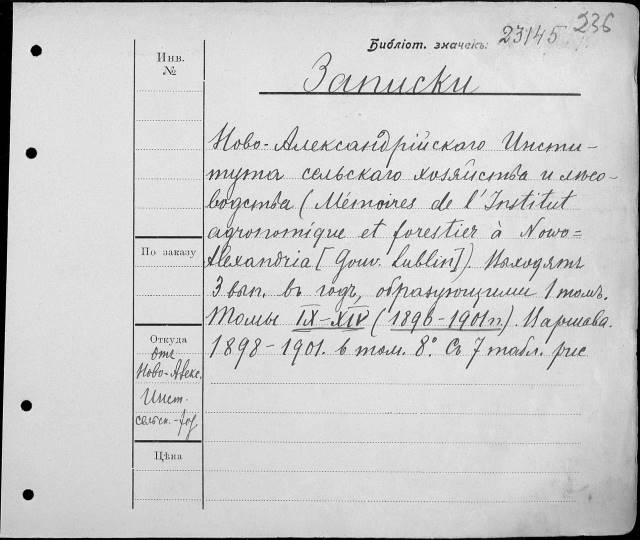 Библіот. значекъ: 23145 236
Инв.
№
Записки
Ново-Александрійскаго Инсти-
тута сельскаго хозяйства и лѣсо-
водства (Mémoires de l'Institut
agronomique et forestier à Nowo=
Alexandria [Gouv. Lublin]). Выходятъ
По заказу
3 вып. въ годъ, образующими 1 томъ.
Томы IX–XIV (1896–1901 гг.). Варшава.
Откуда
1898–1901. в том. 8°. Съ 7 табл. рис
отъ
Ново-Алекс.
Инст.
сельск.-
Цѣна